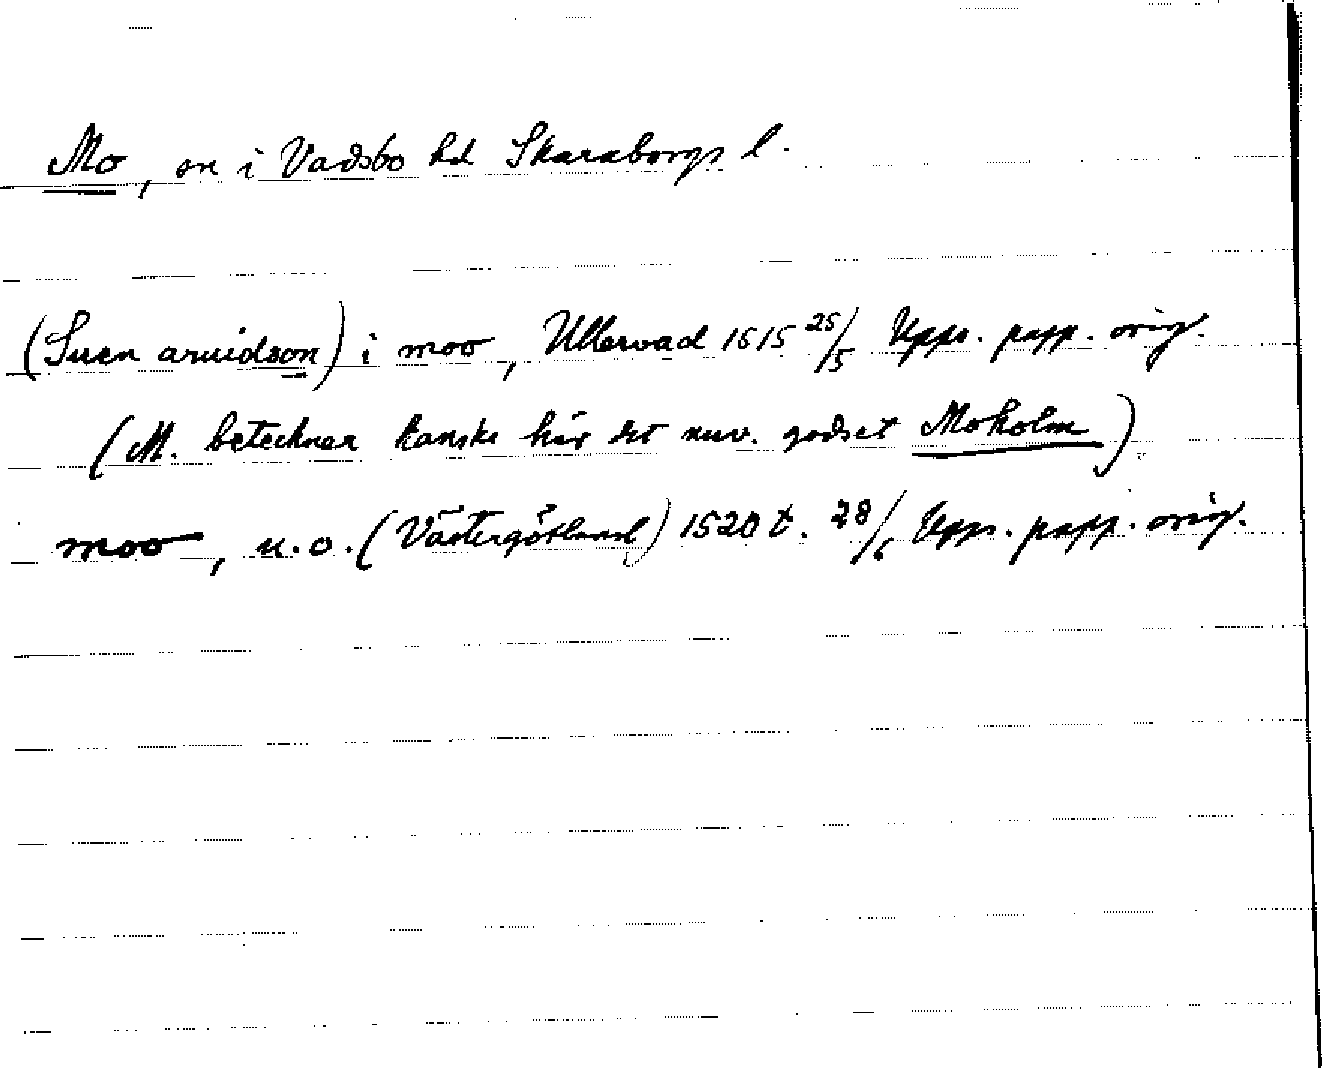 Mo, sn i Vadsbo hd Skaraborgs l.
(Suen aruidson) i moo, Ullervad 1515 25/5 Upps. papp. orig.
(M. betecknar kanske här det nuv. godset Moholm)
moo, u.o. (Västergötland) 1520 t. 28/6 Upps. papp. orig.